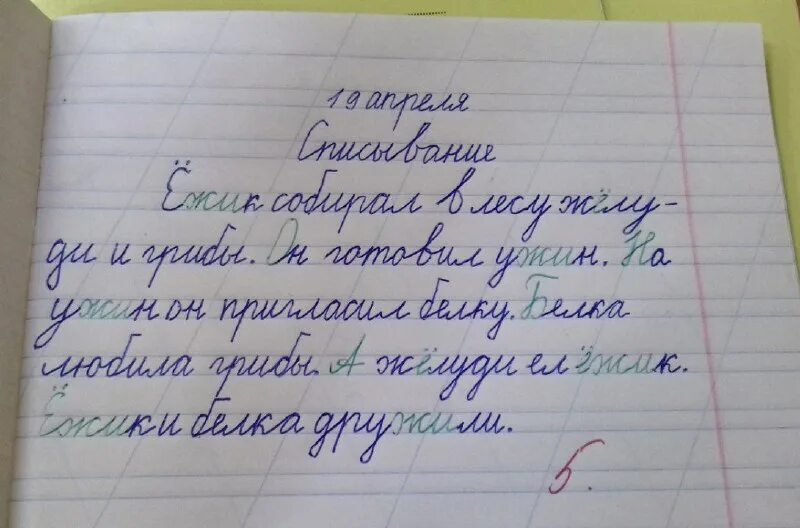 19 апреля
Списывание
Ёжик собирал в лесу жёлу-
ди и грибы. Он готовил ужин. На
ужин он пригласил белку. Белка
любила грибы. А жёлуди ел ёжик.
Ёжик и белка дружили.
5.